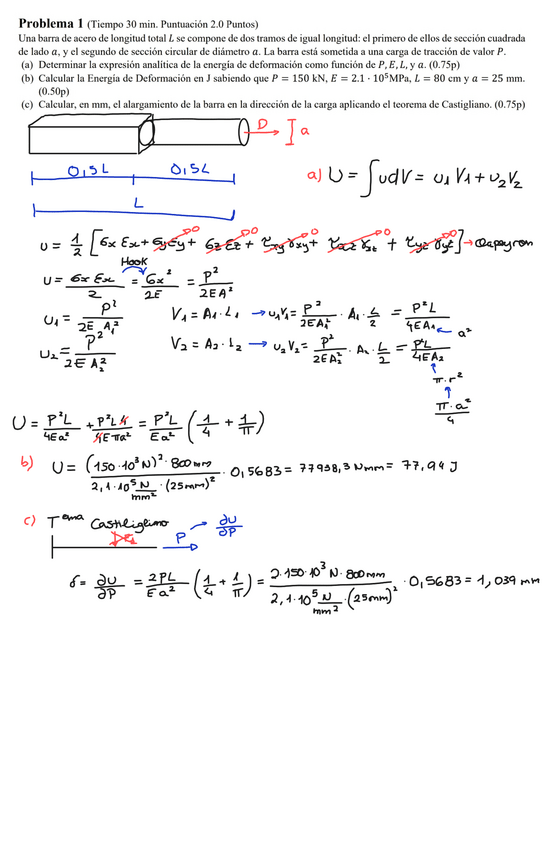 Problema 1 (Tiempo 30 min. Puntuación 2.0 Puntos)
Una barra de acero de longitud total L se compone de dos tramos de igual longitud: el primero de ellos de sección cuadrada
de lado a, y el segundo de sección circular de diámetro a. La barra está sometida a una carga de tracción de valor P.
(a) Determinar la expresión analítica de la energía de deformación como función de P, E, L, y a. (0.75p)
(b) Calcular la Energía de Deformación en J sabiendo que P = 150 kN, E = 2.1 · 10⁵MPa, L = 80 cm y a = 25 mm.
(0.50p)
(c) Calcular, en mm, el alargamiento de la barra en la dirección de la carga aplicando el teorema de Castigliano. (0.75p)
D a
0,5L 0,5L
L
a) U = ∫ u dV = u₁V₁ + u₂V₂
u = 1/2 [σx εx + σy εy + σz εz + τxy γxy + τxz γxz + τyz γyz] → Clapeyron
0 0 0 0 0
Hook
u = σx εx / 2 = σx² / 2E = P² / 2EA²
u₁ = P² / 2E A₁² V₁ = A₁ · L₁ → u₁V₁ = P² / 2EA₁² · A₁ · L/2 = P²L / 4EA₁ ← a²
u₂ = P² / 2E A₂² V₂ = A₂ · L₂ → u₂V₂ = P² / 2EA₂² · A₂ · L/2 = P²L / 4EA₂
π · r²
π · a² / 4
U = P²L / 4Ea² + P²L 4 / 4Eπa² = P²L / Ea² (1/4 + 1/π)
b) U = (150·10³ N)² · 800 mm / 2,1·10⁵ N/mm² · (25mm)² · 0,5683 = 77938,3 Nmm = 77,94 J
c) Tema Castigliano
P → ∂U/∂P
δ = ∂U/∂P = 2PL / Ea² (1/4 + 1/π) = 2·150·10³ N · 800 mm / 2,1·10⁵ N/mm² · (25mm)² · 0,5683 = 1,039 mm